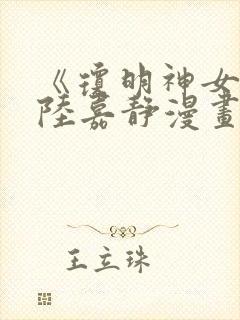 《瓊明神女
陸嘉静漫畫
王立珠